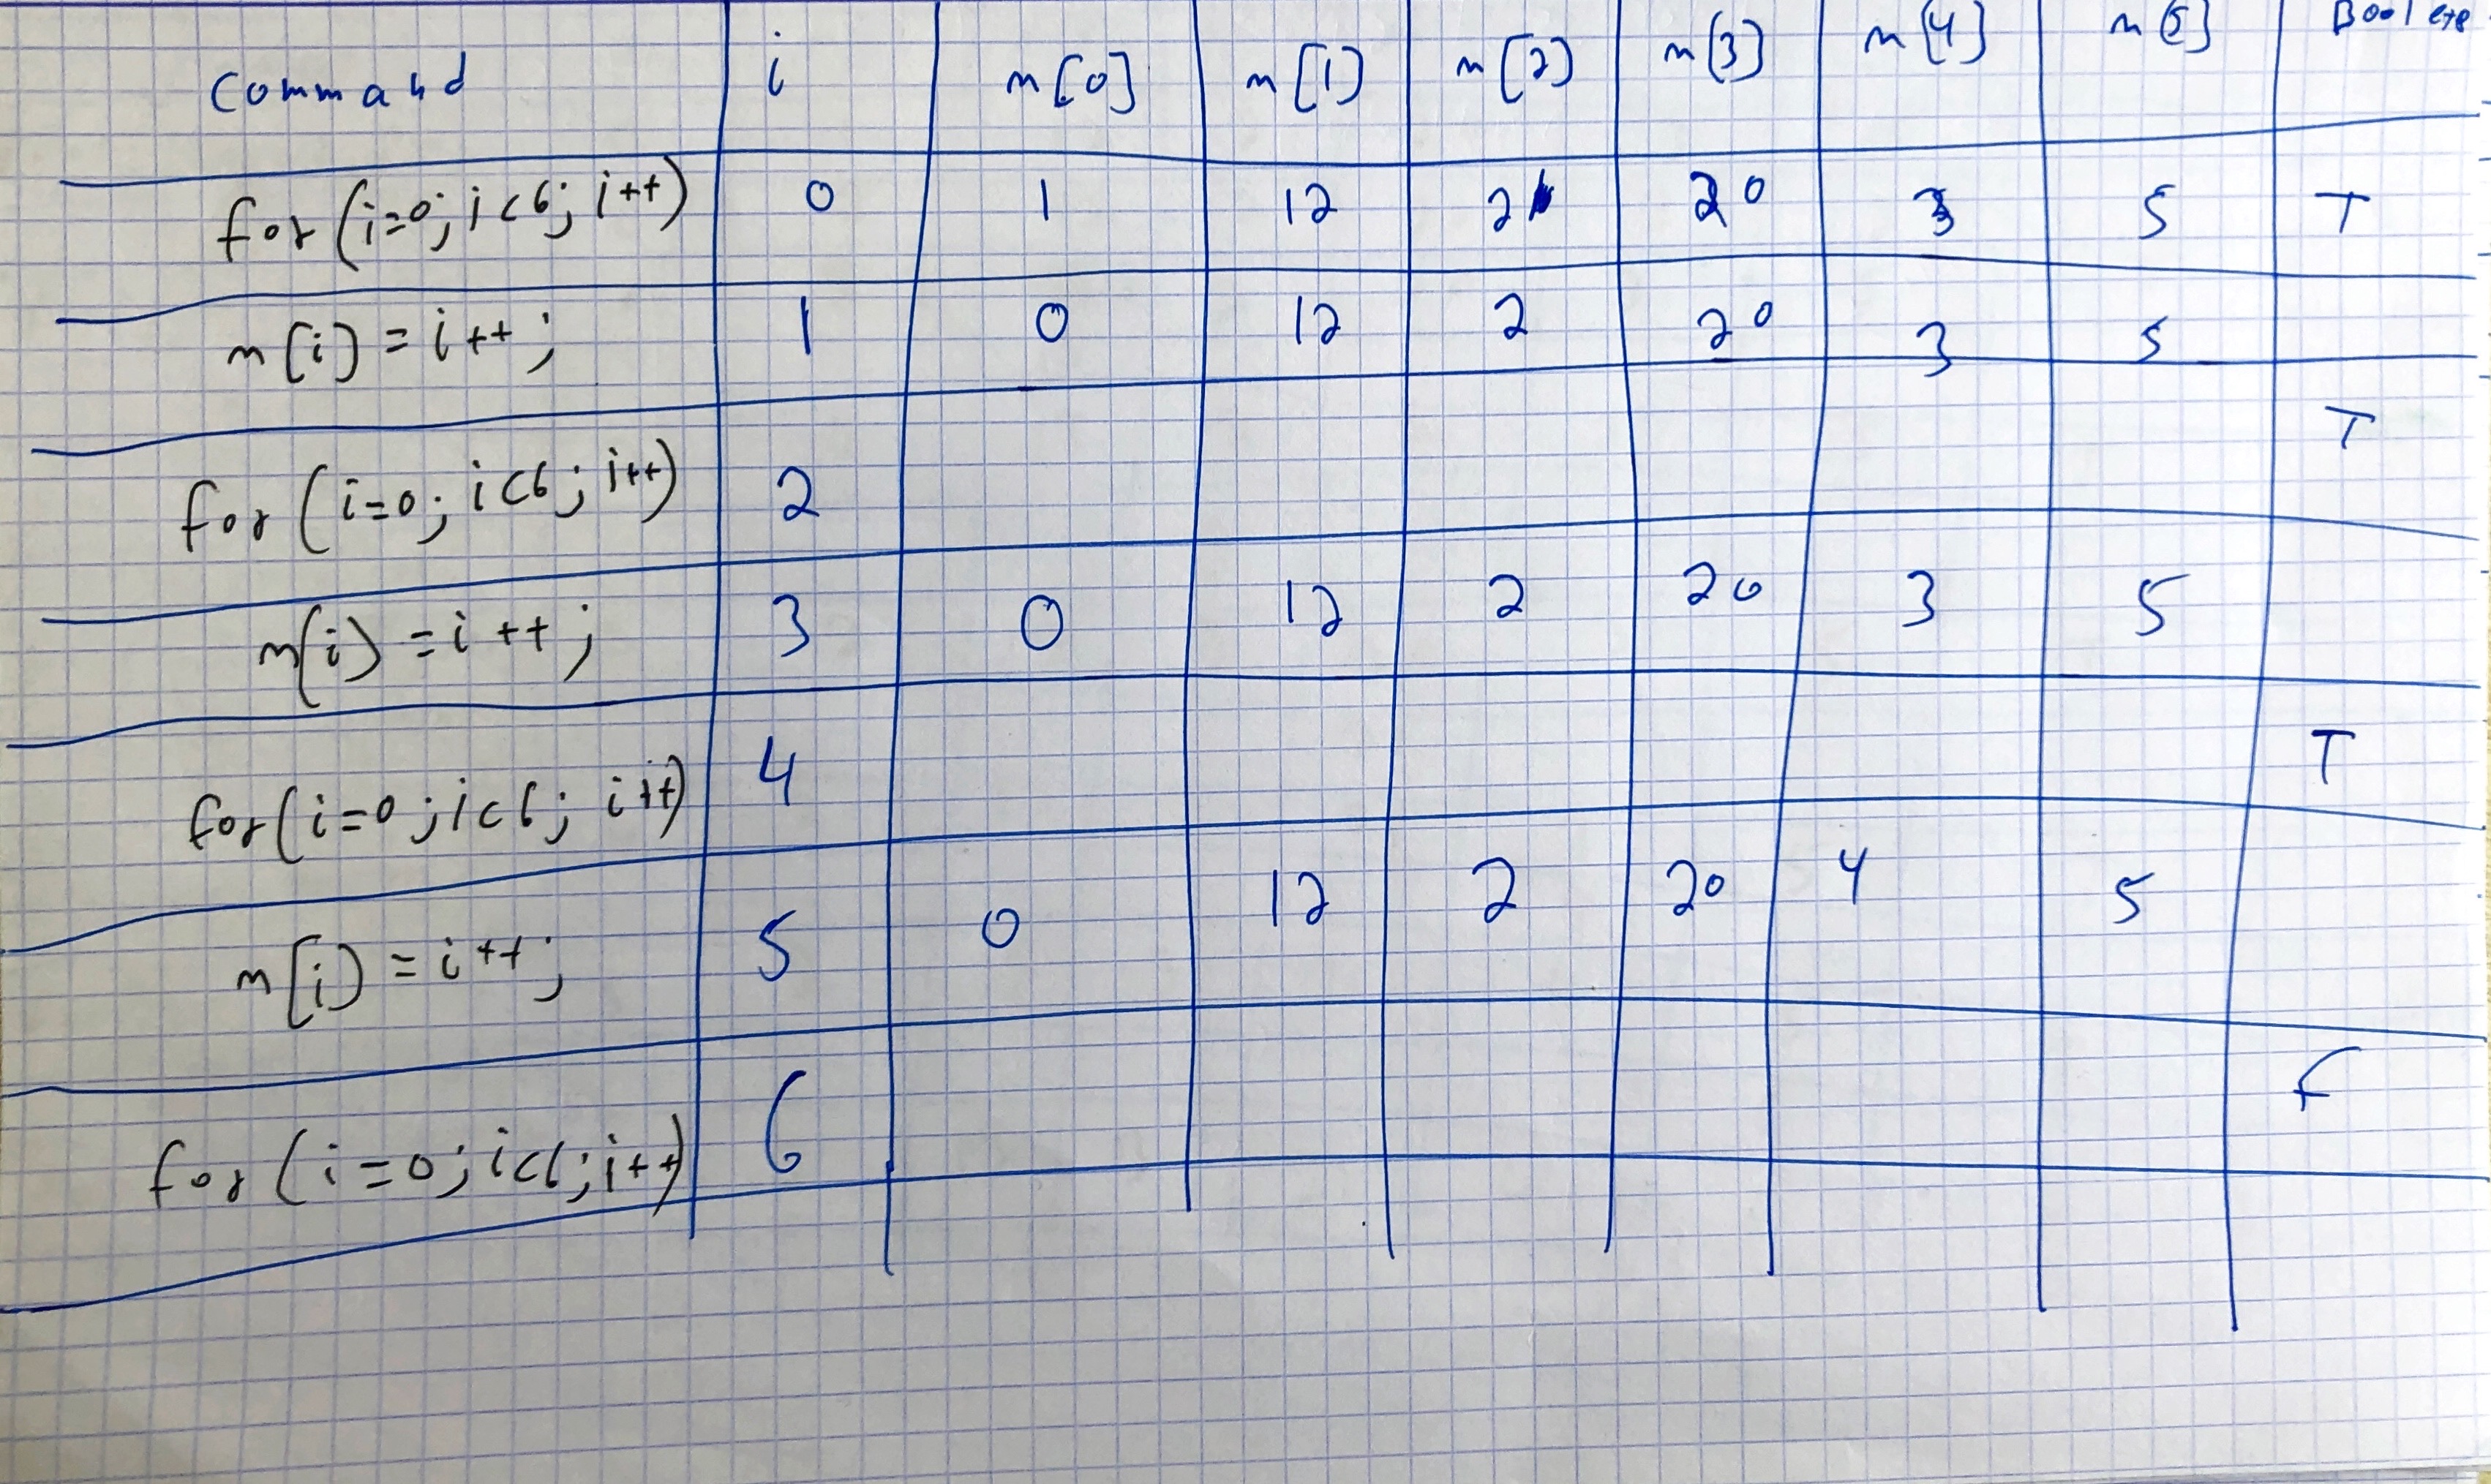 Command i m[0] m[1] m[2] m[3] m[4] m[5]
for (i=0; i<6; i++) 0 1 12 2 20 3 5 T
m[i] = i++; 1 0 12 2 20 3 5
for (i=0; i<6; i++) 2 T
m[i] = i++; 3 0 12 2 20 3 5
for (i=0; i<6; i++) 4 T
m[i] = i++; 5 0 12 2 20 4 5
for (i=0; i<6; i++) 6 F